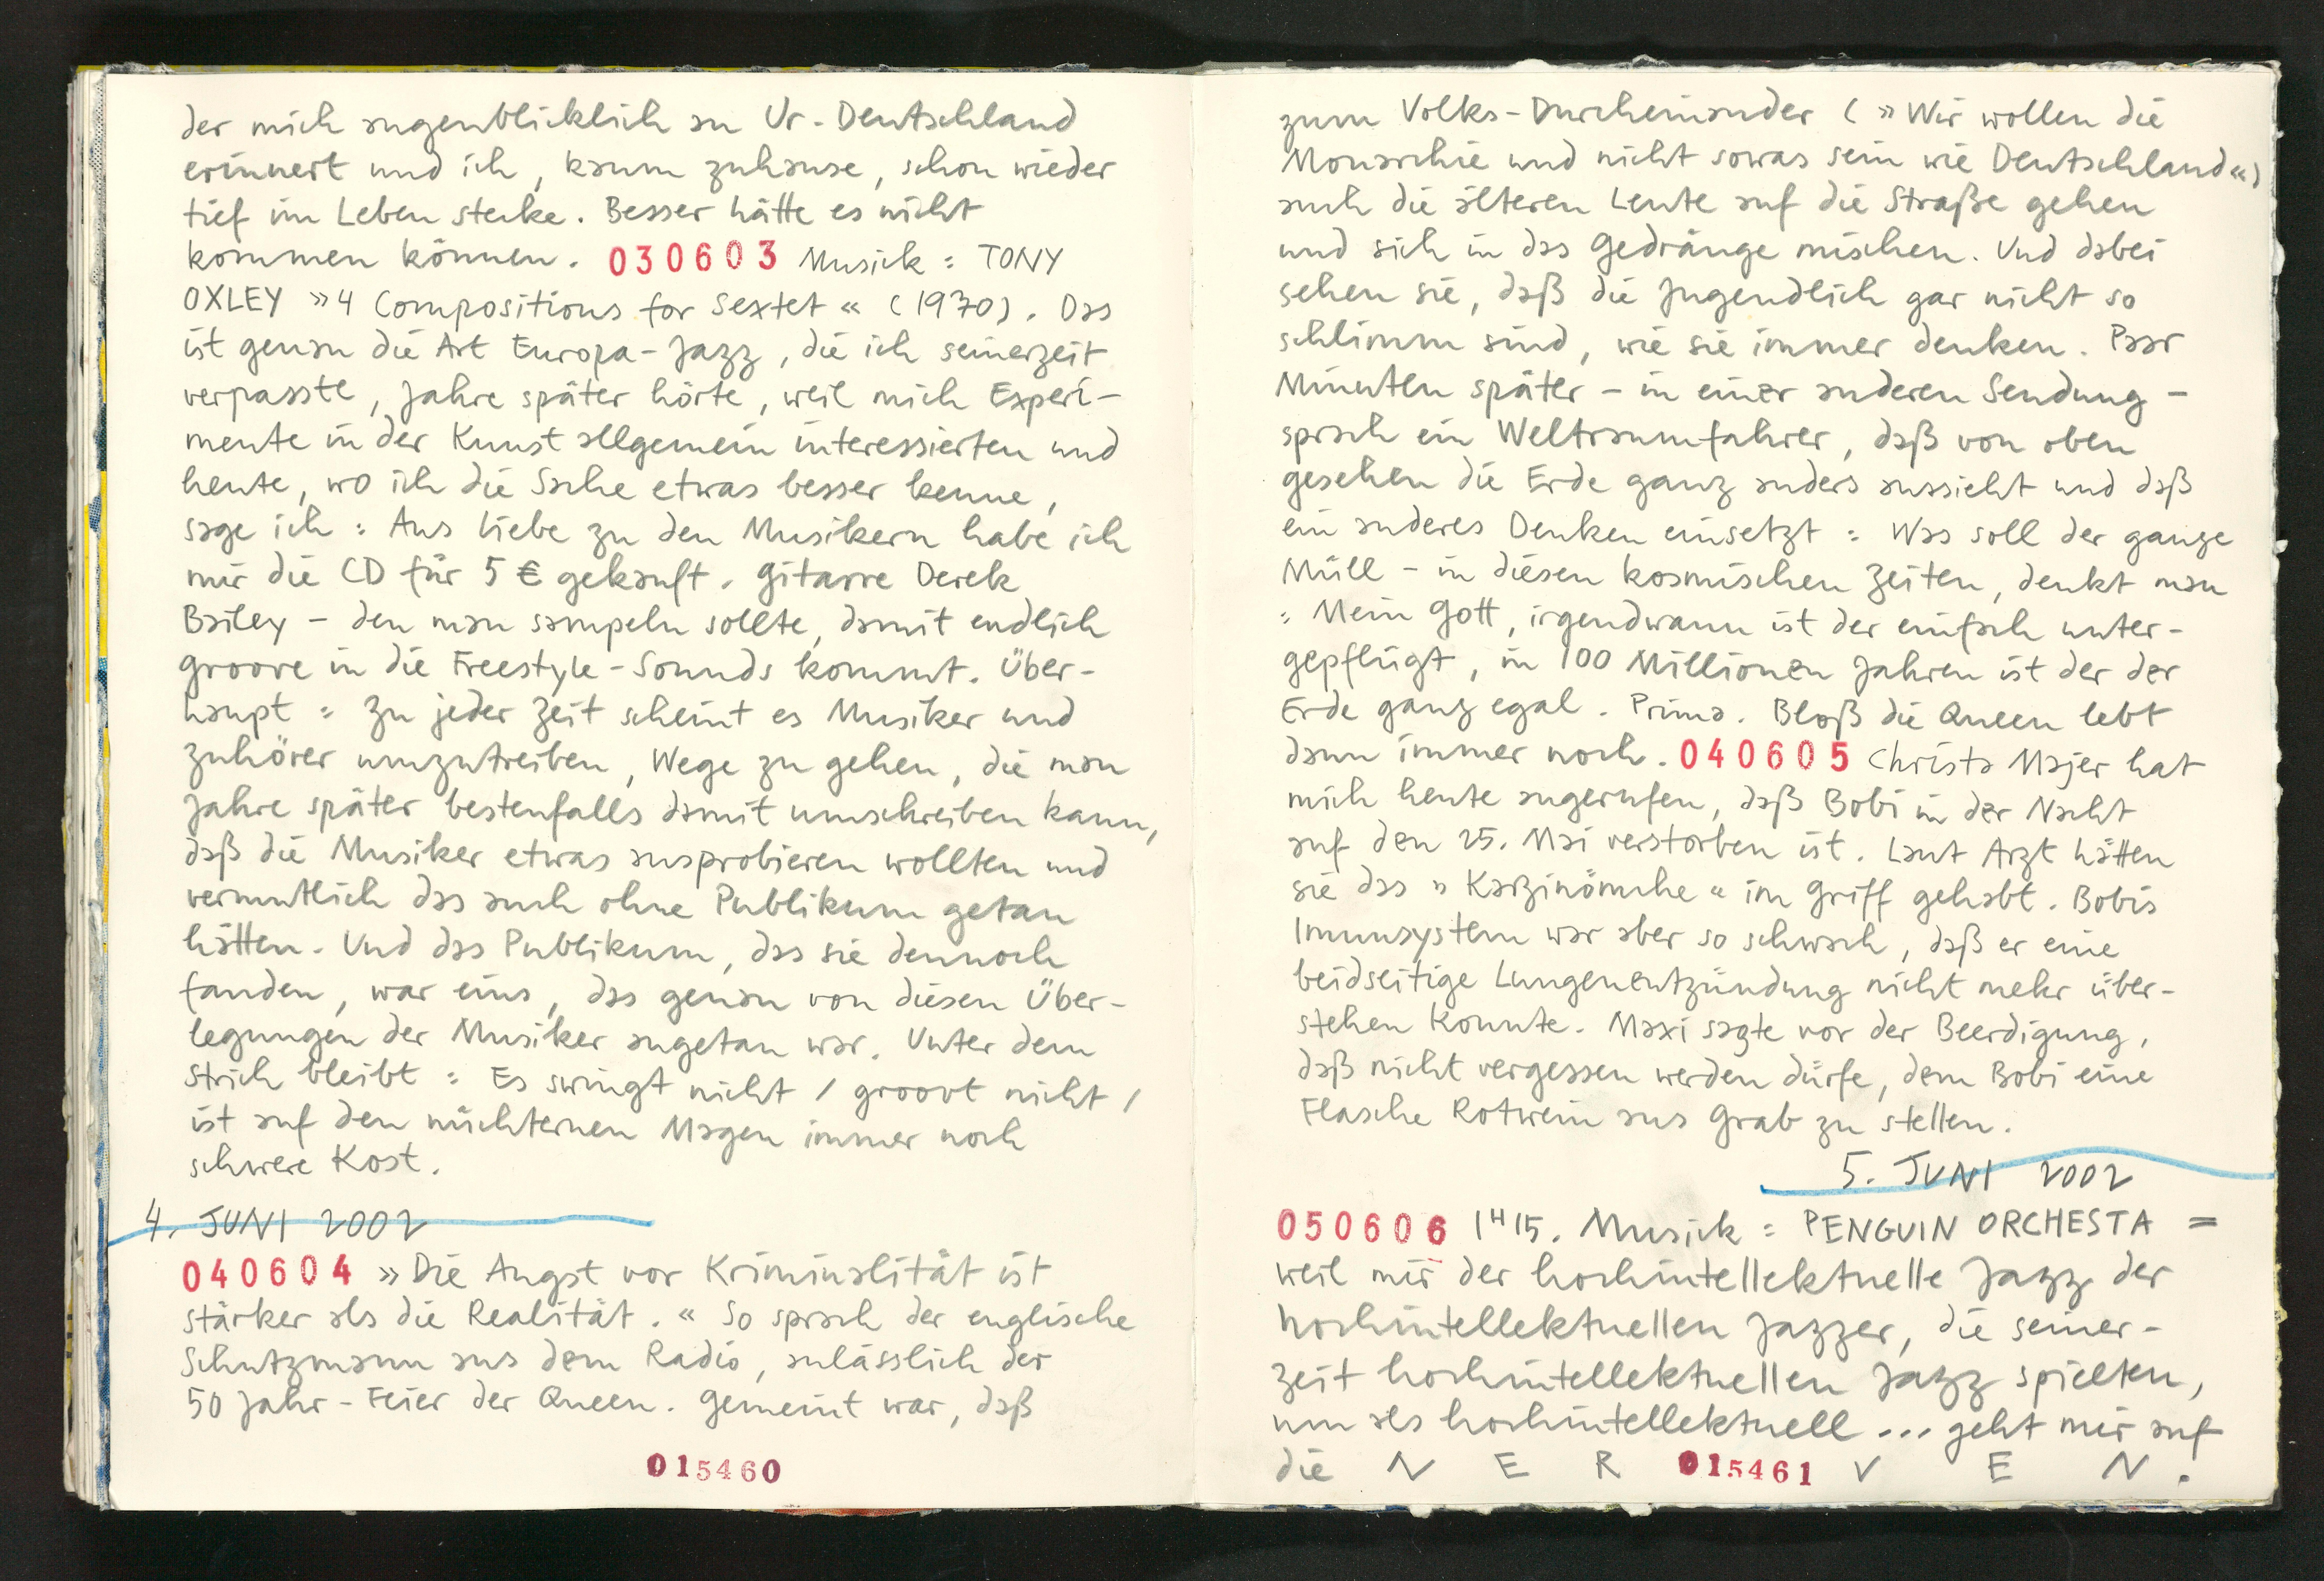 der mich augenblicklich an Ur-Deutschland
erinnert und ich, kaum zuhause, schon wieder
tief im Leben stecke. Besser hätte es nicht
kommen können. 030603 Musick : TONY
OXLEY »4 Compositions for Sextet« (1970). Das
ist genau die Art Europa-Jazz, die ich seinerzeit
verpasste, Jahre später hörte, weil mich Experi-
mente in der Kunst allgemein interessierten und
heute, wo ich die Sache etwas besser kenne,
sage ich : Aus Liebe zu den Musikern habe ich
mir die CD für 5 € gekauft. Gitarre Derek
Bailey – den man sampeln sollte, damit endlich
groove in die Freestyle-Sounds kommt. Über-
haupt : Zu jeder Zeit scheint es Musiker und
Zuhörer umzutreiben, Wege zu gehen, die man
Jahre später bestenfalls damit umschreiben kann,
daß die Musiker etwas ausprobieren wollten und
vermutlich das auch ohne Publikum getan
hätten. Und das Publikum, das sie dennoch
fanden, war eins, das genau von diesen Über-
legungen der Musiker angetan war. Unter dem
Strich bleibt : Es swingt nicht / groovt nicht /
ist auf den nüchternen Magen immer noch
schwere Kost.
4. JUNI 2002
040604 »Die Angst vor Kriminalität ist
stärker als die Realität.« So sprach der englische
Schutzmann aus dem Radio, anlässlich der
50 Jahr-Feier der Queen. Gemeint war, daß
015460
zum Volks-Durcheinander (»Wir wollen die
Monarchie und nicht sowas sein wie Deutschland«)
auch die älteren Leute auf die Straße gehen
und sich in das Gedränge mischen. Und dabei
sehen sie, daß die Jugendlich gar nicht so
schlimm sind, wie sie immer denken. Paar
Minuten später – in einer anderen Sendung –
sprach ein Weltraumfahrer, daß von oben
gesehen die Erde ganz anders aussieht und daß
ein anderes Denken einsetzt : Was soll der ganze
Müll – in diesen kosmischen Zeiten, denkt man
: Mein Gott, irgendwann ist der einfach unter-
gepflügt, in 100 Millionen Jahren ist der der
Erde ganz egal. Prima. Bloß die Queen lebt
dann immer noch. 040605 Christa Majer hat
mich heute angerufen, daß Bobi in der Nacht
auf den 25. Mai verstorben ist. Laut Arzt hätten
sie das »Karzinömche« im Griff gehabt. Bobis
Immunsystem war aber so schwach, daß er eine
beidseitige Lungenentzündung nicht mehr über-
stehen konnte. Maxi sagte vor der Beerdigung,
daß nicht vergessen werden dürfe, dem Bobi eine
Flasche Rotwein ans Grab zu stellen.
5. JUNI 2002
050606 1H15. Musick : PENGUIN ORCHESTA =
weil mir der hochintellektuelle Jazz der
hochintellektuellen Jazzer, die seiner-
zeit hochintellektuellen Jazz spielten,
um als hochintellektuell ... geht mir auf
die N E R V E N .
015461